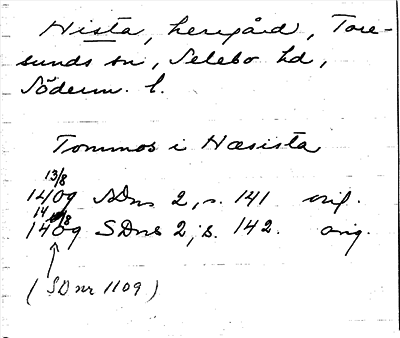 Hista, herrgård, Tore-
sunds sn, Selebo hd,
Söderm. l.
Tommos i Hæsista
13/8
1409 SDns 2, s. 141 orig.
14/8
1409 SDns 2, s. 142. orig.
(SD nr 1109)